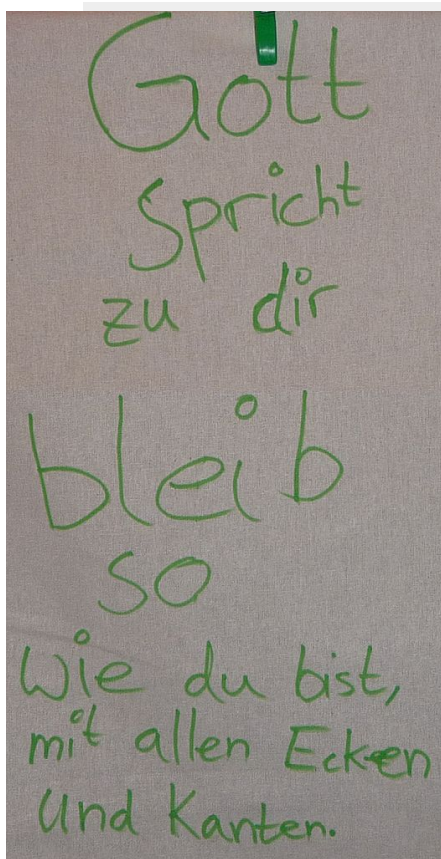 Gott
Spricht
zu dir
bleib
so
wie du bist,
mit allen Ecken
und Kanten.